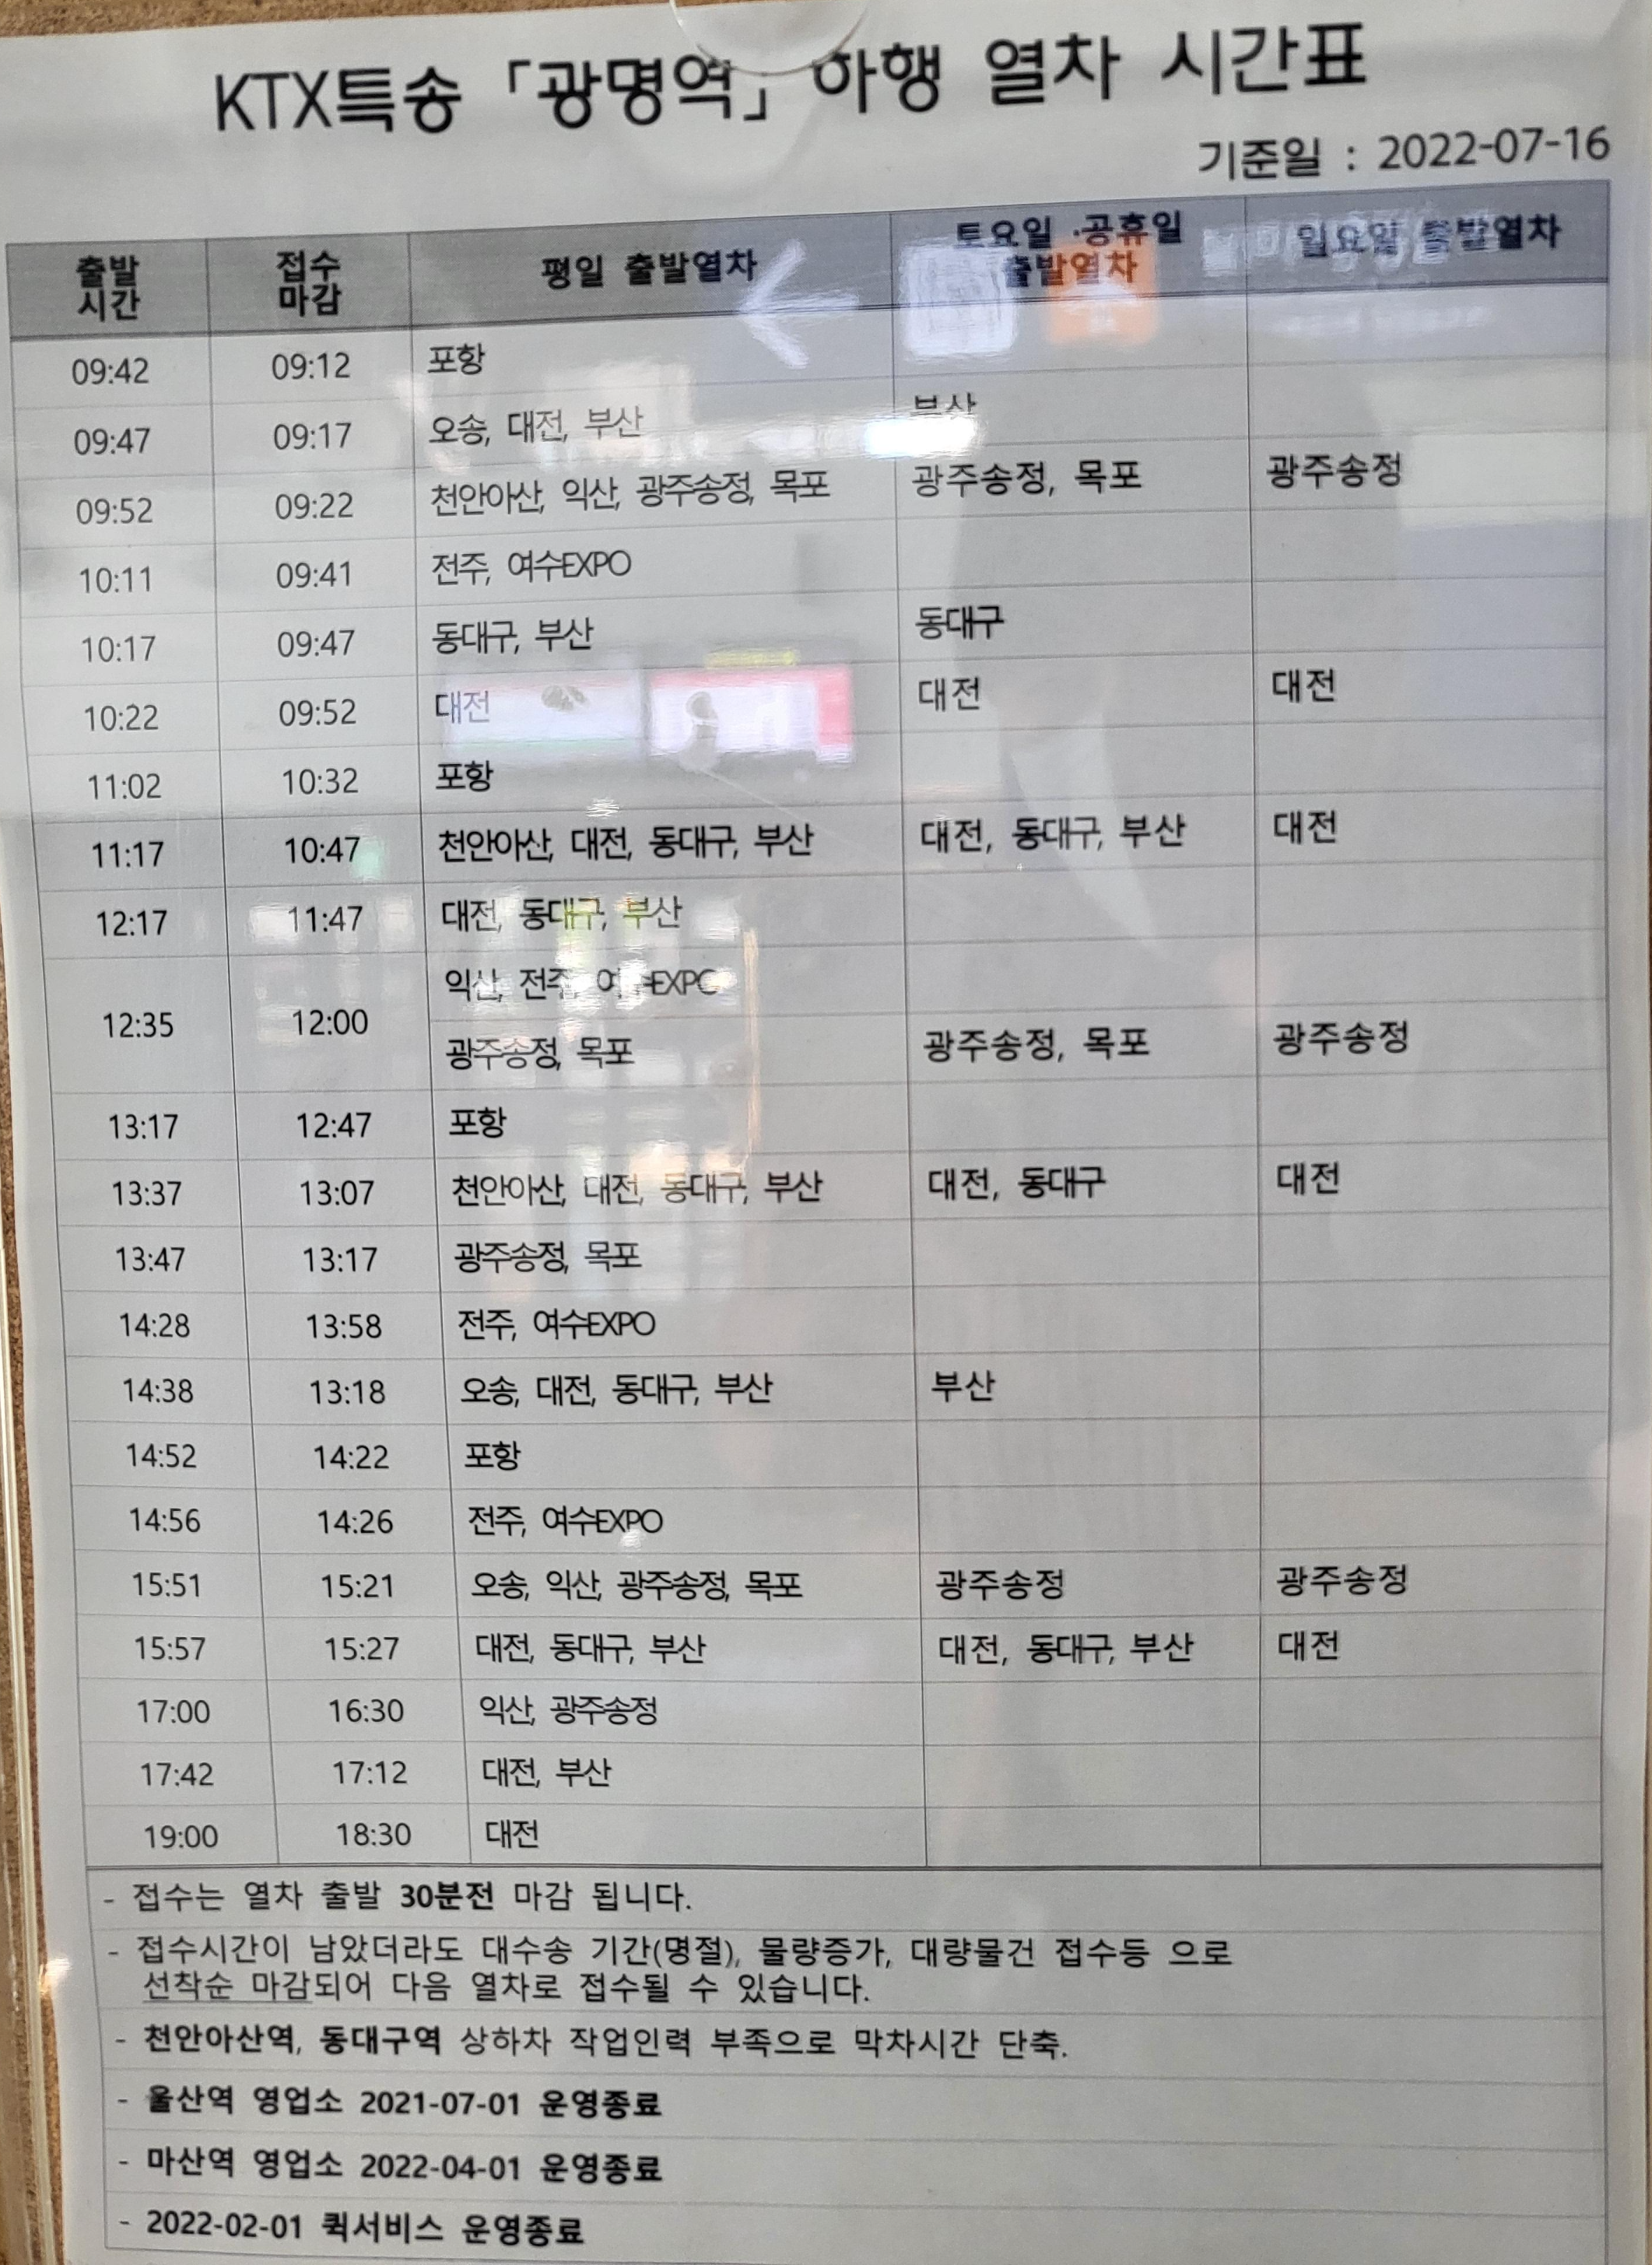 KTX특송 「광명역」 하행 열차 시간표
기준일 : 2022-07-16
출발 시간 접수 마감 평일 출발열차 토요일 ·공휴일 출발열차 일요일 출발열차
09:42 09:12 포항
09:47 09:17 오송, 대전, 부산 부산
09:52 09:22 천안아산, 익산, 광주송정, 목포 광주송정, 목포 광주송정
10:11 09:41 전주, 여수EXPO
10:17 09:47 동대구, 부산 동대구
10:22 09:52 대전 대전 대전
11:02 10:32 포항
11:17 10:47 천안아산, 대전, 동대구, 부산 대전, 동대구, 부산 대전
12:17 11:47 대전, 동대구, 부산
12:35 12:00 익산, 전주, 여수EXPO
광주송정, 목포 광주송정, 목포 광주송정
13:17 12:47 포항
13:37 13:07 천안아산, 대전, 동대구, 부산 대전, 동대구 대전
13:47 13:17 광주송정, 목포
14:28 13:58 전주, 여수EXPO
14:38 13:18 오송, 대전, 동대구, 부산 부산
14:52 14:22 포항
14:56 14:26 전주, 여수EXPO
15:51 15:21 오송, 익산, 광주송정, 목포 광주송정 광주송정
15:57 15:27 대전, 동대구, 부산 대전, 동대구, 부산 대전
17:00 16:30 익산, 광주송정
17:42 17:12 대전, 부산
19:00 18:30 대전
- 접수는 열차 출발 30분전 마감 됩니다.
- 접수시간이 남았더라도 대수송 기간(명절), 물량증가, 대량물건 접수등 으로
선착순 마감되어 다음 열차로 접수될 수 있습니다.
- 천안아산역, 동대구역 상하차 작업인력 부족으로 막차시간 단축.
- 울산역 영업소 2021-07-01 운영종료
- 마산역 영업소 2022-04-01 운영종료
- 2022-02-01 퀵서비스 운영종료